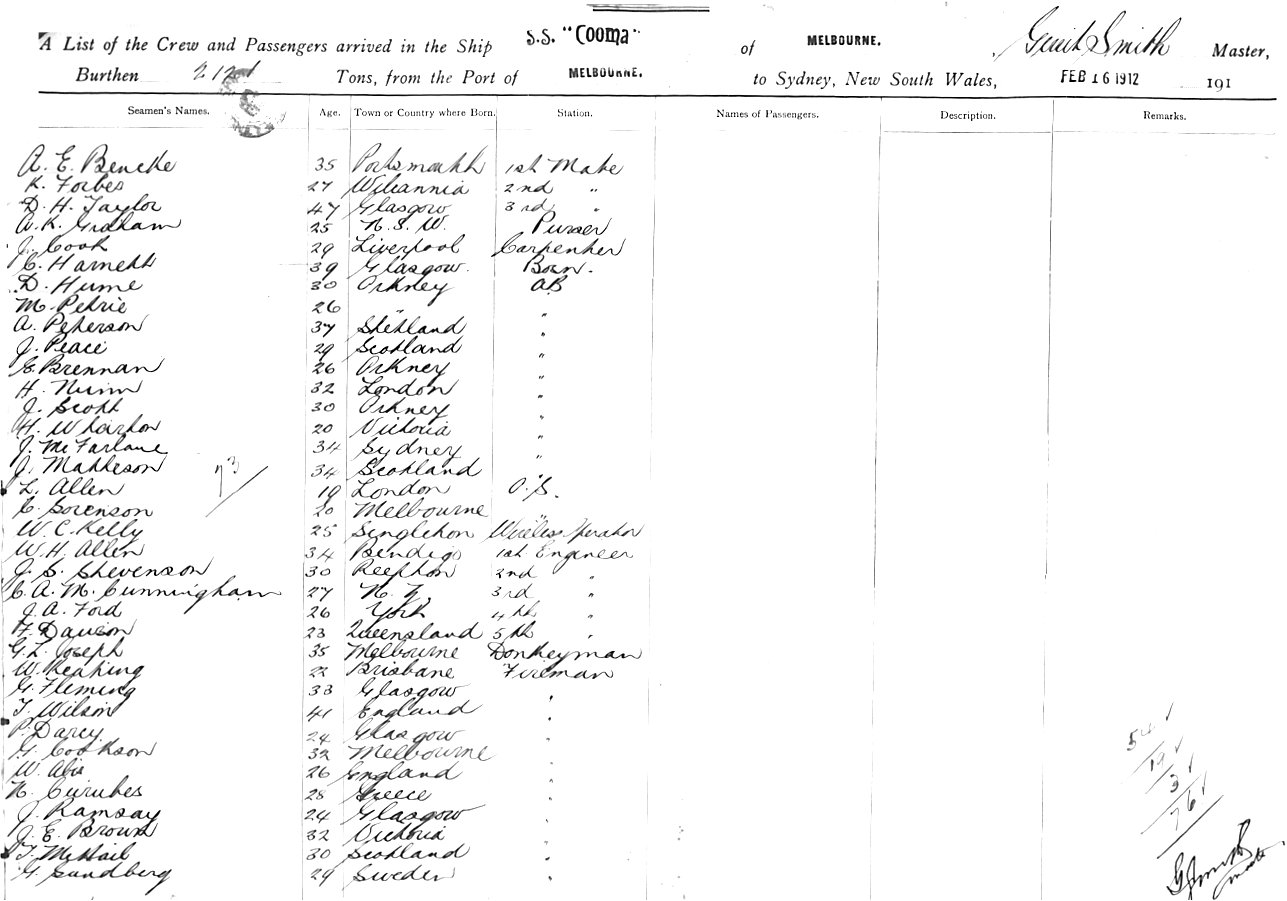 A List of the Crew and Passengers arrived in the Ship S.S. "Cooma" of MELBOURNE, Smith Master,
Burthen Tons, from the Port of MELBOURNE. to Sydney, New South Wales, FEB 16 1912 191
Seamen's Names. Age. Town or Country where Born. Station. Names of Passengers. Description. Remarks.
A. E. Bencke 35 Portsmouth 1st Mate
K. Forbes 27 Wilcannia 2nd "
D. H. Taylor 47 Glasgow 3rd "
A. K. Graham 25 N. S. W. Purser
J. Cook 29 Liverpool Carpenter
C. Harnett 39 Glasgow. Bosn.
D. Hume 30 Orkney AB
M. Petrie 26 " "
A. Peterson 37 Shetland "
J. Peace 29 Scotland "
E. Brennan 26 Orkney "
H. Nunn 32 London "
J. Scott 30 Orkney "
H. Wharton 20 Victoria "
J. McFarlane 34 Sydney "
J. Matheson 34 Scotland "
L. Allen 19 London O.S.
C. Sorenson 20 Melbourne "
W. C. Kelly 25 Singleton Wireless Operator
W. H. Allen 34 Bendigo 1st Engineer
J. S. Stevenson 30 Reefton 2nd "
C. A. M. Cunningham 27 N. Z. 3rd "
J. A. Ford 26 York 4th "
F. 23 Queensland 5th "
G. L. Joseph 35 Melbourne Donkeyman
W. Keating 22 Brisbane Fireman
G. Fleming 33 Glasgow "
T. Wilson 41 England "
P. Darcy 24 Glasgow "
G. Cookson 32 Melbourne "
W. 26 England "
N. 28 Greece "
J. Ramsay 24 Glasgow "
J. E. Brown 32 Victoria "
T. McHail 30 Scotland "
G. Sundberg 29 Sweden "
73
54
19
3
76
G Smith